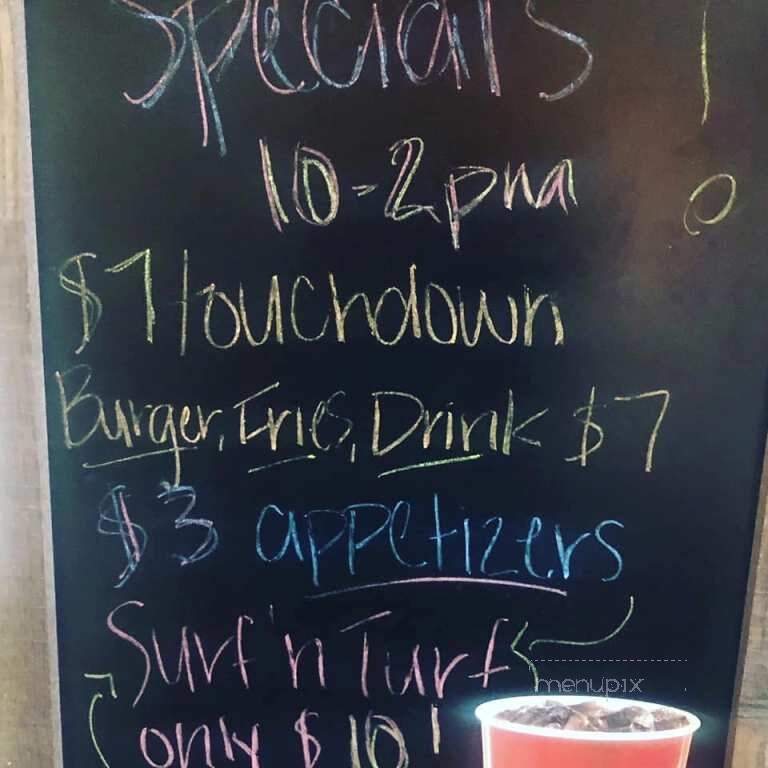 Specials !
10-2pm
$7 touchdown
Burger, Fries, Drink $7
$3 appetizers
Surf 'n Turf
menupix
only $10!